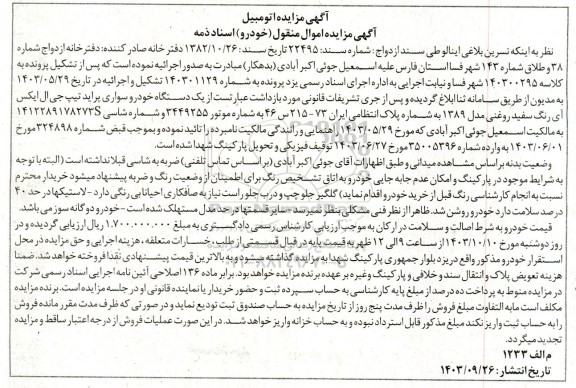 آگهی مزایده اتومبیل
آگهی مزایده اموال منقول (خودرو) اسناد ذمه
نظر به اینکه نسرین بلاغی اینالو طی سند ازدواج: شماره سند: ۲۲۴۹۵ تاریخ سند: ۱۳۸۲/۱۰/۲۶ دفتر خانه صادر کننده: دفتر خانه ازدواج شماره
۳۸ و طلاق شماره ۱۴۳ شهر فسا استان فارس علیه اسمعیل جوئی اکبر آبادی (بدهکار) مبادرت به صدور اجرائیه نموده است که پس از تشکیل پرونده به
کلاسه ۱۴۰۳۰۰۲۹۵ شهر فسا و نیابت اجرایی به اداره اجرای اسناد رسمی یزد پرونده به شماره ۱۴۰۳۰۱۱۲۹ تشکیل و اجرائیه در تاریخ ۱۴۰۳/۰۵/۲۹
به مدیون از طریق سامانه ثنا ابلاغ گردیده و پس از جری تشریفات قانونی مورد بازداشت عبارتست از یک دستگاه خودرو سواری پراید تیپ جی ال ایکس
آی رنگ سفید روغنی مدل ۱۳۸۹ به شماره پلاک انتظامی ایران ۷۳-۲۱۵ س ۴۶ به شماره موتور ۳۴۴۹۲۵۵ و شماره شاسی S۱۴۱۲۲۸۹۱۷۸۲۷۳
به مالکیت اسمعیل جوئی اکبر آبادی که مورخ ۱۴۰۳/۰۵/۲۹ راهنمایی و رانندگی مالکیت نامبرده را تائید نموده و بموجب قبض شماره ۳۲۴۸۹۸ مورخ
۱۴۰۳/۰۶/۰۱ به وارده شماره ۳۵۰۰۵۳۹۶ مورخ ۱۴۰۳/۰۶/۲۷ توقیف فیزیکی و تحویل پارکینگ شهدا شده است.
وضعیت بدنه بر اساس مشاهده میدانی و طبق اظهارات آقای جوئی اکبر آبادی (بر اساس تماس تلفنی) ضربه به شاسی قبلا نداشته است (البته با توجه
به شرایط موجود در پارکینگ و امکان عدم جابه جایی خودرو به اتاق تشخیص رنگ برای اطمینان از وضعیت رنگ و ضربه پیشنهاد میشود خریدار محترم
نسبت به انجام کارشناسی رنگ قبل از خرید خودرو اقدام نماید) گلگیر جلو چپ و درب جلو راست نیاز به صافکاری احیانا بی رنگی دارد - لاستیکها در حد ۴۰
درصد سلامت دارد خودرو روشن شد. ظاهرا از نظر فنی مشکلی بنظر نمیرسد - سایر قسمتها در حد مدل مستهلک شده است - خودرو دوگانه سوز می باشد.
قیمت خودرو به شرط اصالت و سلامت در ارکان به موجب ارزیابی کارشناس رسمی دادگستری به مبلغ ۱.۷۰۰.۰۰۰.۰۰۰ ریال ارزیابی گردیده و در
روز دوشنبه مورخ ۱۴۰۳/۱۰/۱۰ از ساعت ۹ الی ۱۲ ظهر به قیمت پایه در قبال قسمتی از طلب، خسارات متعلقه، هزینه اجرایی و حق مزایده در محل
استقرار خودرو مذکور واقع در یزد بلوار جمهوری پارکینگ شهدا به مزایده گذاشته میشود و به بالاترین قیمت پیشنهادی نقدا فروخته خواهد شد. ضمنا
هزینه تعویض پلاک و انتقال سند و خلافی و پارکینگ و غیره بر عهده برنده مزایده خواهد بود. برابر ماده ۱۳۶ اصلاحی آئین نامه اجرای اسناد رسمی شرکت
در مزایده منوط به پرداخت ده درصد از مبلغ پایه کارشناسی به حساب سپرده ثبت و حضور خریدار یا نماینده قانونی او در جلسه مزایده است. برنده مزایده
مکلف است مابه التفاوت مبلغ فروش را ظرف مدت پنج روز از تاریخ مزایده به حساب صندوق ثبت تودیع نماید و در صورتی که ظرف مدت مقرر مانده فروش
را به حساب ثبت واریز نکند مبلغ مذکور قابل استرداد نبوده و به حساب خزانه واریز خواهد شد. در این صورت عملیات فروش از درجه اعتبار ساقط و مزایده
تجدید میگردد.
م الف ۱۲۳۳
تاریخ انتشار: ۱۴۰۳/۰۹/۲۶